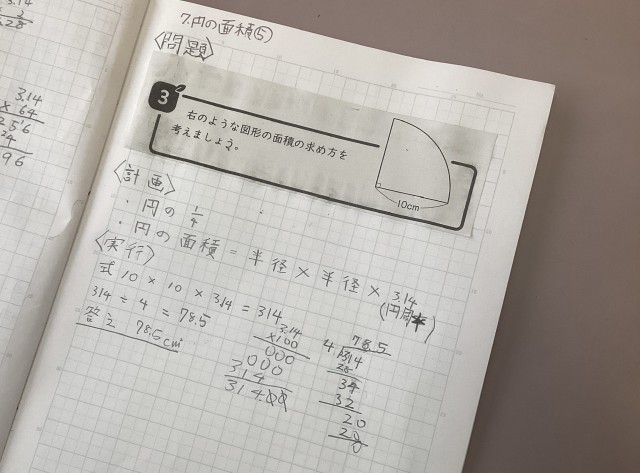 7.円の面積⑤
〈問題〉
3
右のような図形の面積の求め方を
考えましょう。
10cm
〈計画〉
・円の 1/4
・円の面積 = 半径 × 半径 × 3.14
(円周率)
〈実行〉
式 10 × 10 × 3.14 = 314
314 ÷ 4 = 78.5
答え 78.5cm²
3.14
×100
000
000
314
314.00
78.5
4)314
28
34
32
20
20
0
3.14
× 64
256
24
96